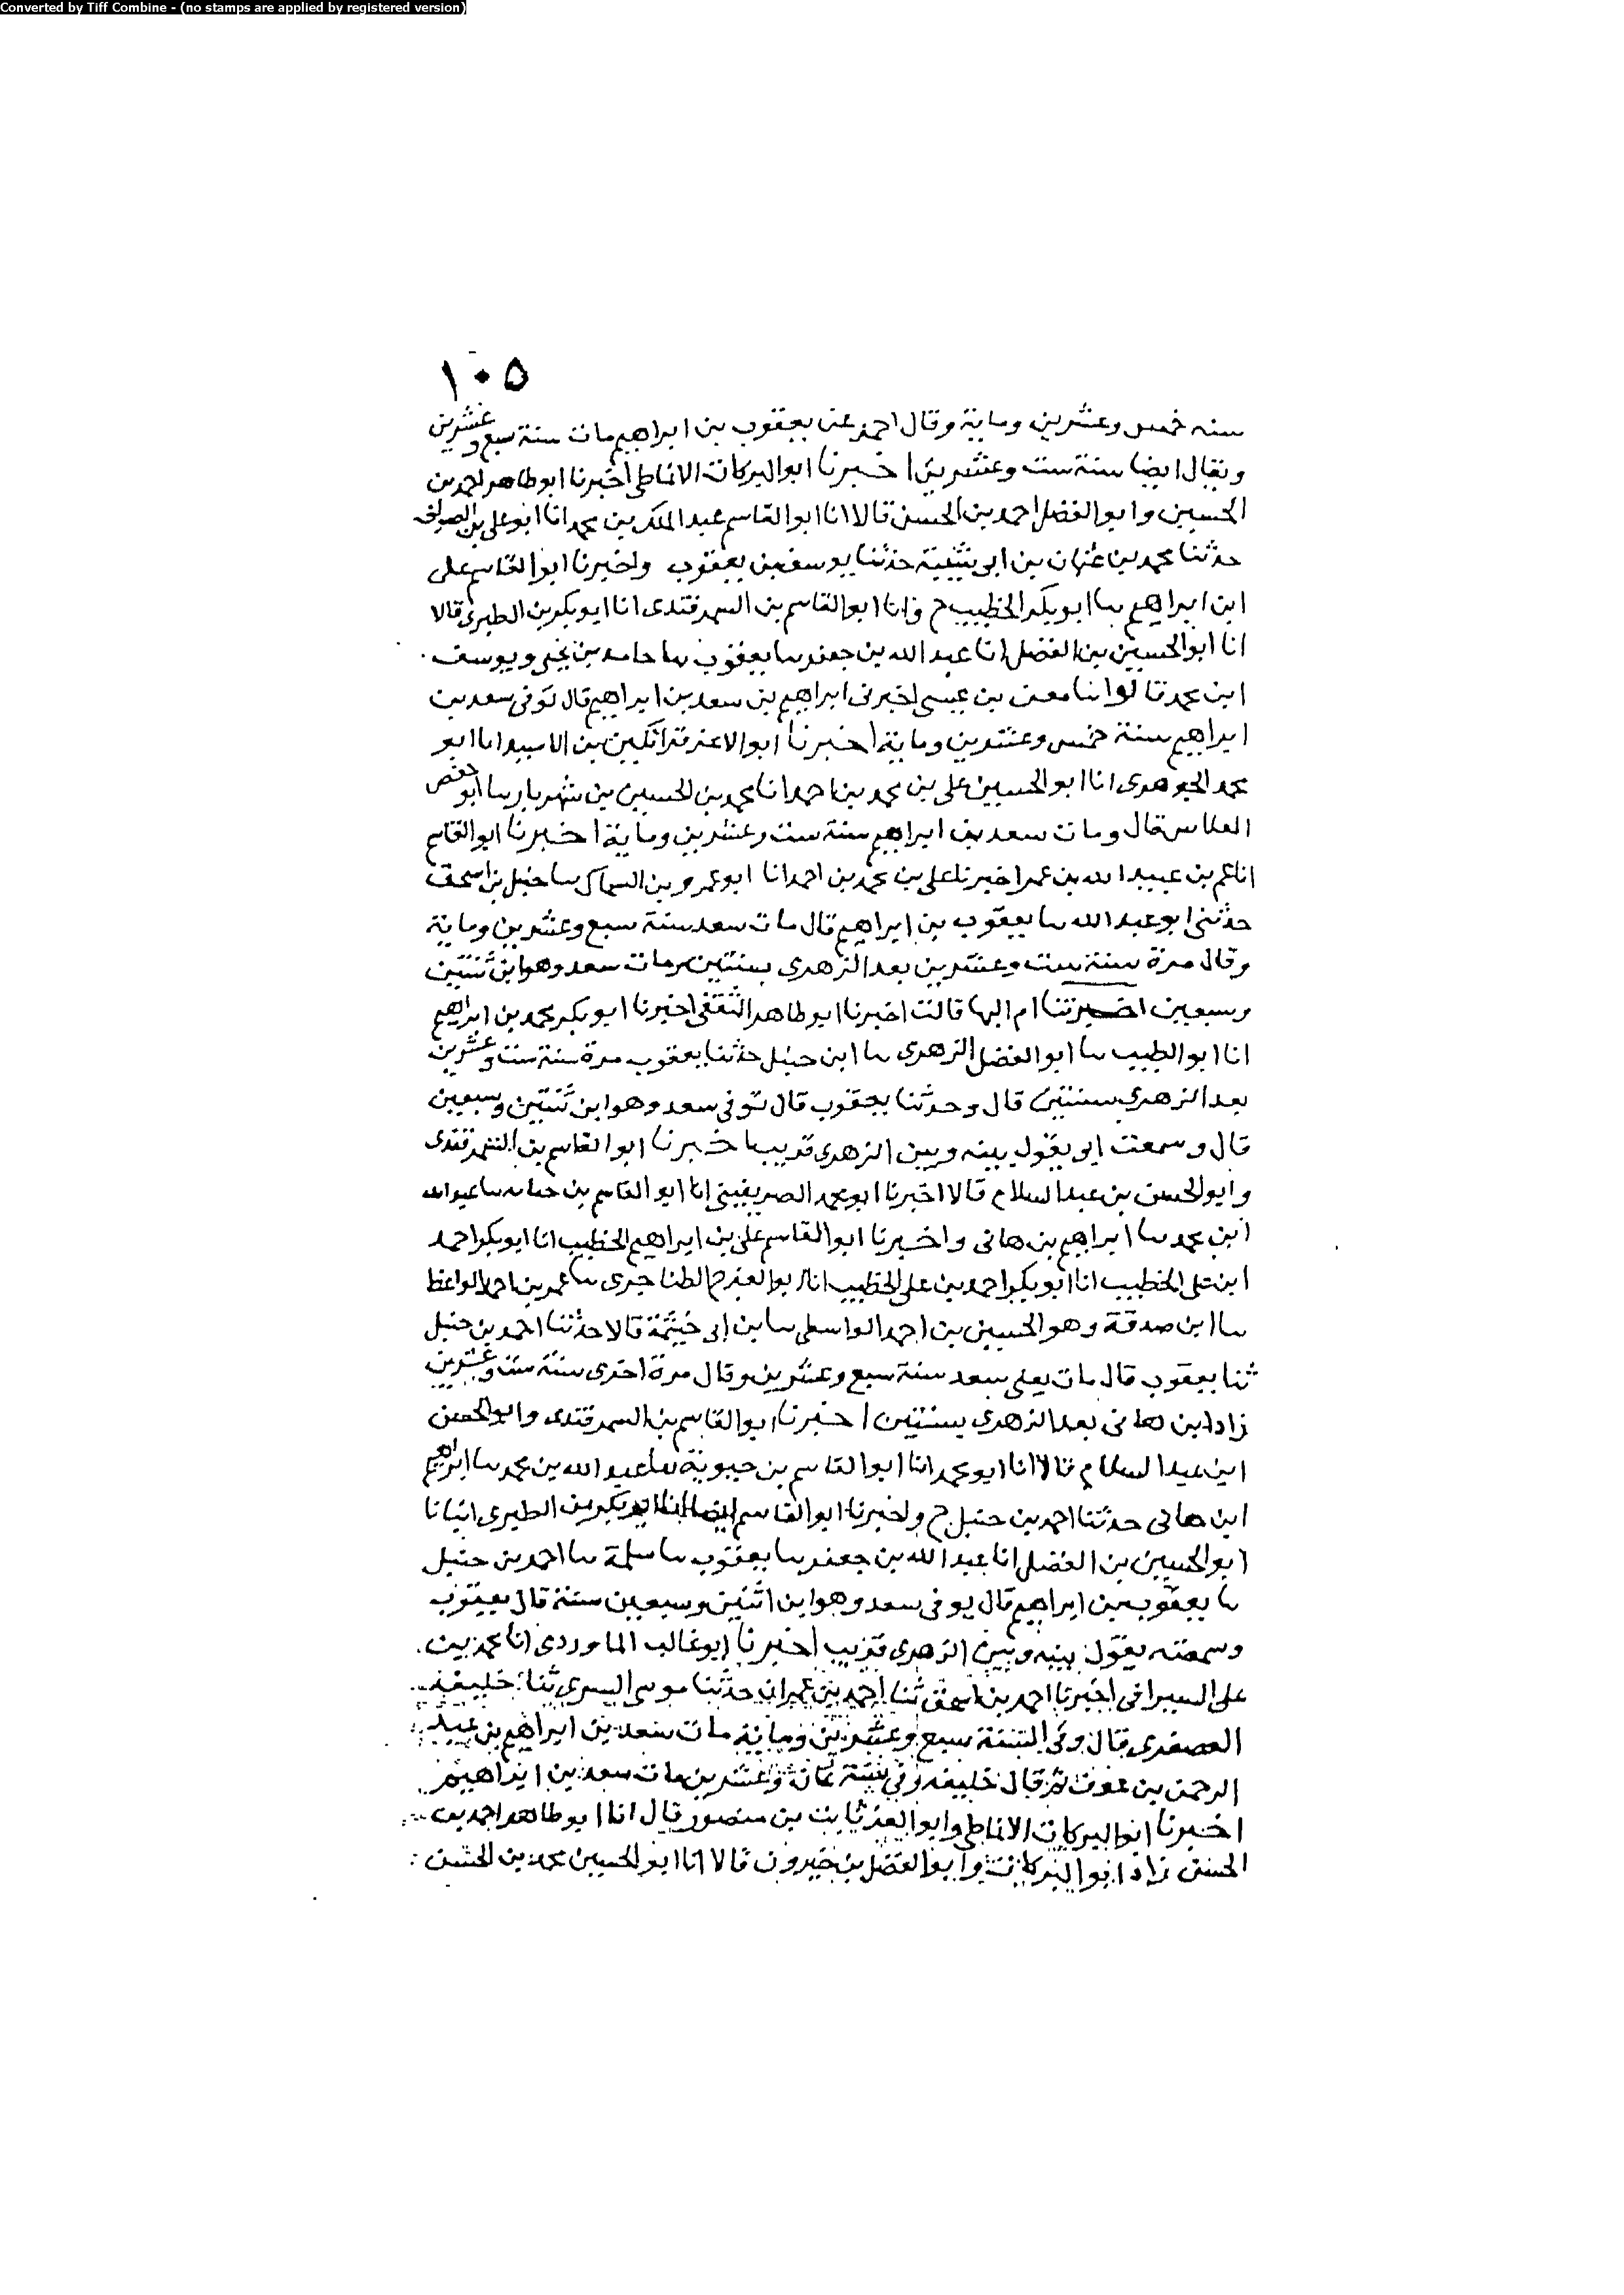 Converted by Tiff Combine - (no stamps are applied by registered version)
١٠٥
سنه خمس وعشرين وماية وقال احمد عن يعقوب بن ابراهيم مات سنة سبع وعشرين
ويقال ايضا سنة ست وعشرين اخبرنا ابو البركات الانماطى اخبرنا ابو طاهر احمد بن
الحسين وابو الفضل احمد بن الحسن قالا انا ابو القاسم عبد الملك بن محمد انا ابو على بن الصواف
حدثنا محمد بن عثمان بن ابى شيبة حدثنا يوسف بن يعقوب واخبرنا ابو القاسم على
ابن ابراهيم نا ابو بكر الخطيب ح وانا ابو القاسم بن السمرقندى انا ابو بكر بن الطبرى قالا
انا ابو الحسين بن الفضل انا عبد الله بن جعفر نا يعقوب نا حامد بن يحيى ويوسف
ابن محمد قالوا نا معن بن عيسى اخبرنى ابراهيم بن سعد بن ابراهيم قال توفى سعد بن
ابراهيم سنة خمس وعشرين وماية اخبرنا ابو الاعز قراتكين بن الاسعد انا ابو
محمد الجوهرى انا ابو الحسين على بن محمد بن احمد انا محمد بن الحسين بن شهريار نا ابو حفص
الفلاس قال ومات سعد بن ابراهيم سنة ست وعشرين وماية اخبرنا ابو القاسم
انا عمر بن عبيد الله بن عمر اخبرنا على بن محمد بن احمد انا ابو عمرو بن السماك نا حنبل بن اسحق
حدثنى ابو عبد الله نا يعقوب بن ابراهيم قال مات سعد سنة سبع وعشرين وماية
وقال مرة سنة ست وعشرين بعد الزهرى بسنتين ومات سعد وهو ابن ثنتين
وسبعين اخبرتنا ام البها قالت اخبرنا ابو طاهر الثقفى اخبرنا ابو بكر محمد بن ابراهيم
انا ابو الطيب نا ابو الفضل الزهرى نا ابن حنبل حدثنا يعقوب مرة سنة ست وعشرين
بعد الزهرى بسنتين قال وحدثنا يعقوب قال توفى سعد وهو ابن ثنتين وسبعين
قال وسمعت ابى يقول بينه وبين الزهرى قريب اخبرنا ابو القاسم بن السمرقندى
وابو الحسن بن عبد السلام قالا اخبرنا ابو محمد الصريفينى انا ابو القاسم بن حبابه نا عبد الله
ابن محمد نا ابراهيم بن هانى واخبرنا ابو القاسم على بن ابراهيم الخطيب انا ابو بكر احمد
ابن على الخطيب انا ابو بكر احمد بن على الخطيب انا ابو الفرج الطناجيرى نا عمر بن احمد الواعظ
نا ابن صدقة وهو الحسين بن احمد الواسطى نا بن ابى خيثمة قالا حدثنا احمد بن حنبل
ثنا يعقوب قال مات يعنى سعد سنة سبع وعشرين وقال مرة اخرى سنة ست وعشرين
زاد ابن هانى بعد الزهرى بسنتين اخبرنا ابو القاسم بن السمرقندى وابو الحسن
ابن عبد السلام قالا انا ابو محمد انا ابو القاسم بن حبوبة نا عبد الله بن محمد نا ابراهيم
ابن هانى حدثنا احمد بن حنبل ح واخبرنا ابو القاسم ايضا انا ابو بكر بن الطبرى انبانا
ابو الحسين بن الفضل انا عبد الله بن جعفر نا يعقوب نا سلمة نا احمد بن حنبل
نا يعقوب بن ابراهيم قال توفى سعد وهو ابن اثنين وسبعين سنة قال يعقوب
وسمعته يقول بينه وبين الزهرى قريب اخبرنا ابو غالب الماوردى انا محمد بن
على السيرافى اخبرنا احمد بن اسحق ثنا احمد بن عمران حدثنا موسى اليسرى ثنا خليفه
العصفرى قال وفى السنة سبع وعشرين وماية مات سعد بن ابراهيم بن عبد
الرحمن بن عوف ثم قال خليفه وفى سنة ثمان وعشرين مات سعد بن ابراهيم
اخبرنا ابو البركات الانماطى وابو العز ثابت بن منصور قال انا ابو طاهر احمد بن
الحسن زاد ابو البركات وابو الفضل بن خيرون قالا انا ابو الحسين محمد بن الحسن